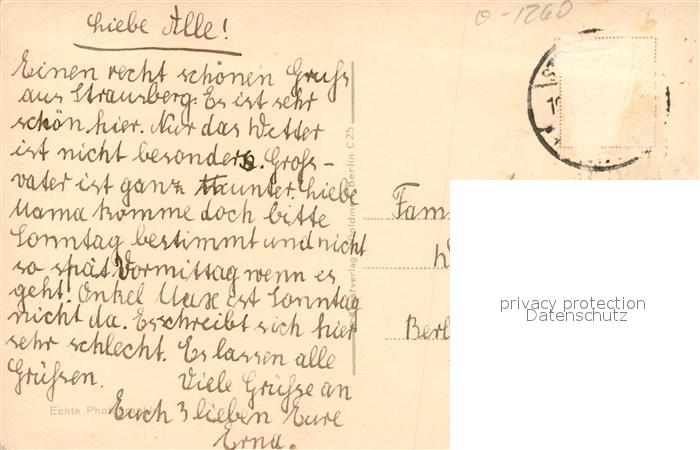 Liebe Alle!
0-1260
Einen recht schönen Gruß
aus Strausberg. Es ist sehr
schön hier. Nur das Wetter
ist nicht besonders. Groß-
vater ist ganz munter. Liebe
Mama komme doch bitte
Sonntag bestimmt und nicht
so spät Vormittag wenn es
geht! Onkel Max ist Sonntag
nicht da. Es schreibt sich hier
sehr schlecht. Es lassen alle
Grüßen. Viele Grüße an
Euch 3 lieben Eure
Erna.
Fam
W
Berl
Berlin C 25
Echte Phot
privacy protection
Datenschutz